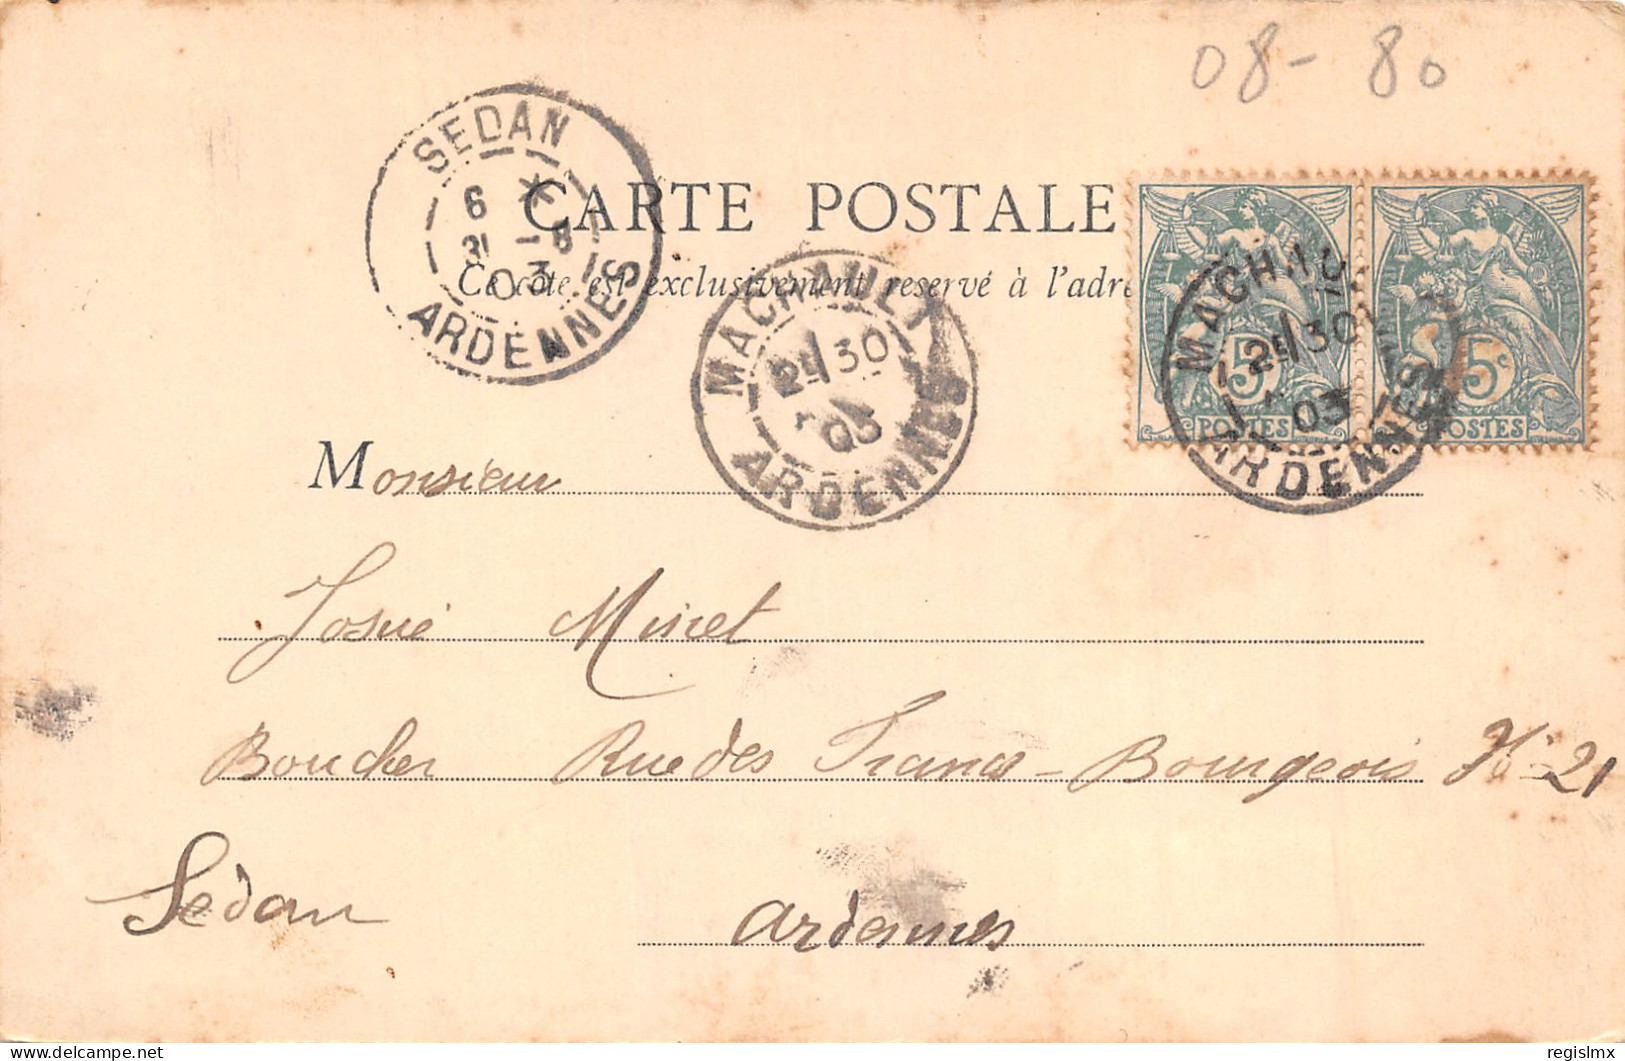 08 - 80
SEDAN
6 * 5
31 - 5
03
ARDENNES
CARTE POSTALE
Ce côté est exclusivement reservé à l'adre
MACHAULT
30
03
ARDENNES
MACHAU
30
03
ARDENNES
5
POSTES
5c
POSTES
Monsieur
Josué Minet
Boucher Rue des Francs-Bourgeois No 21
Sedan Ardennes
regislmx
delcampe.net